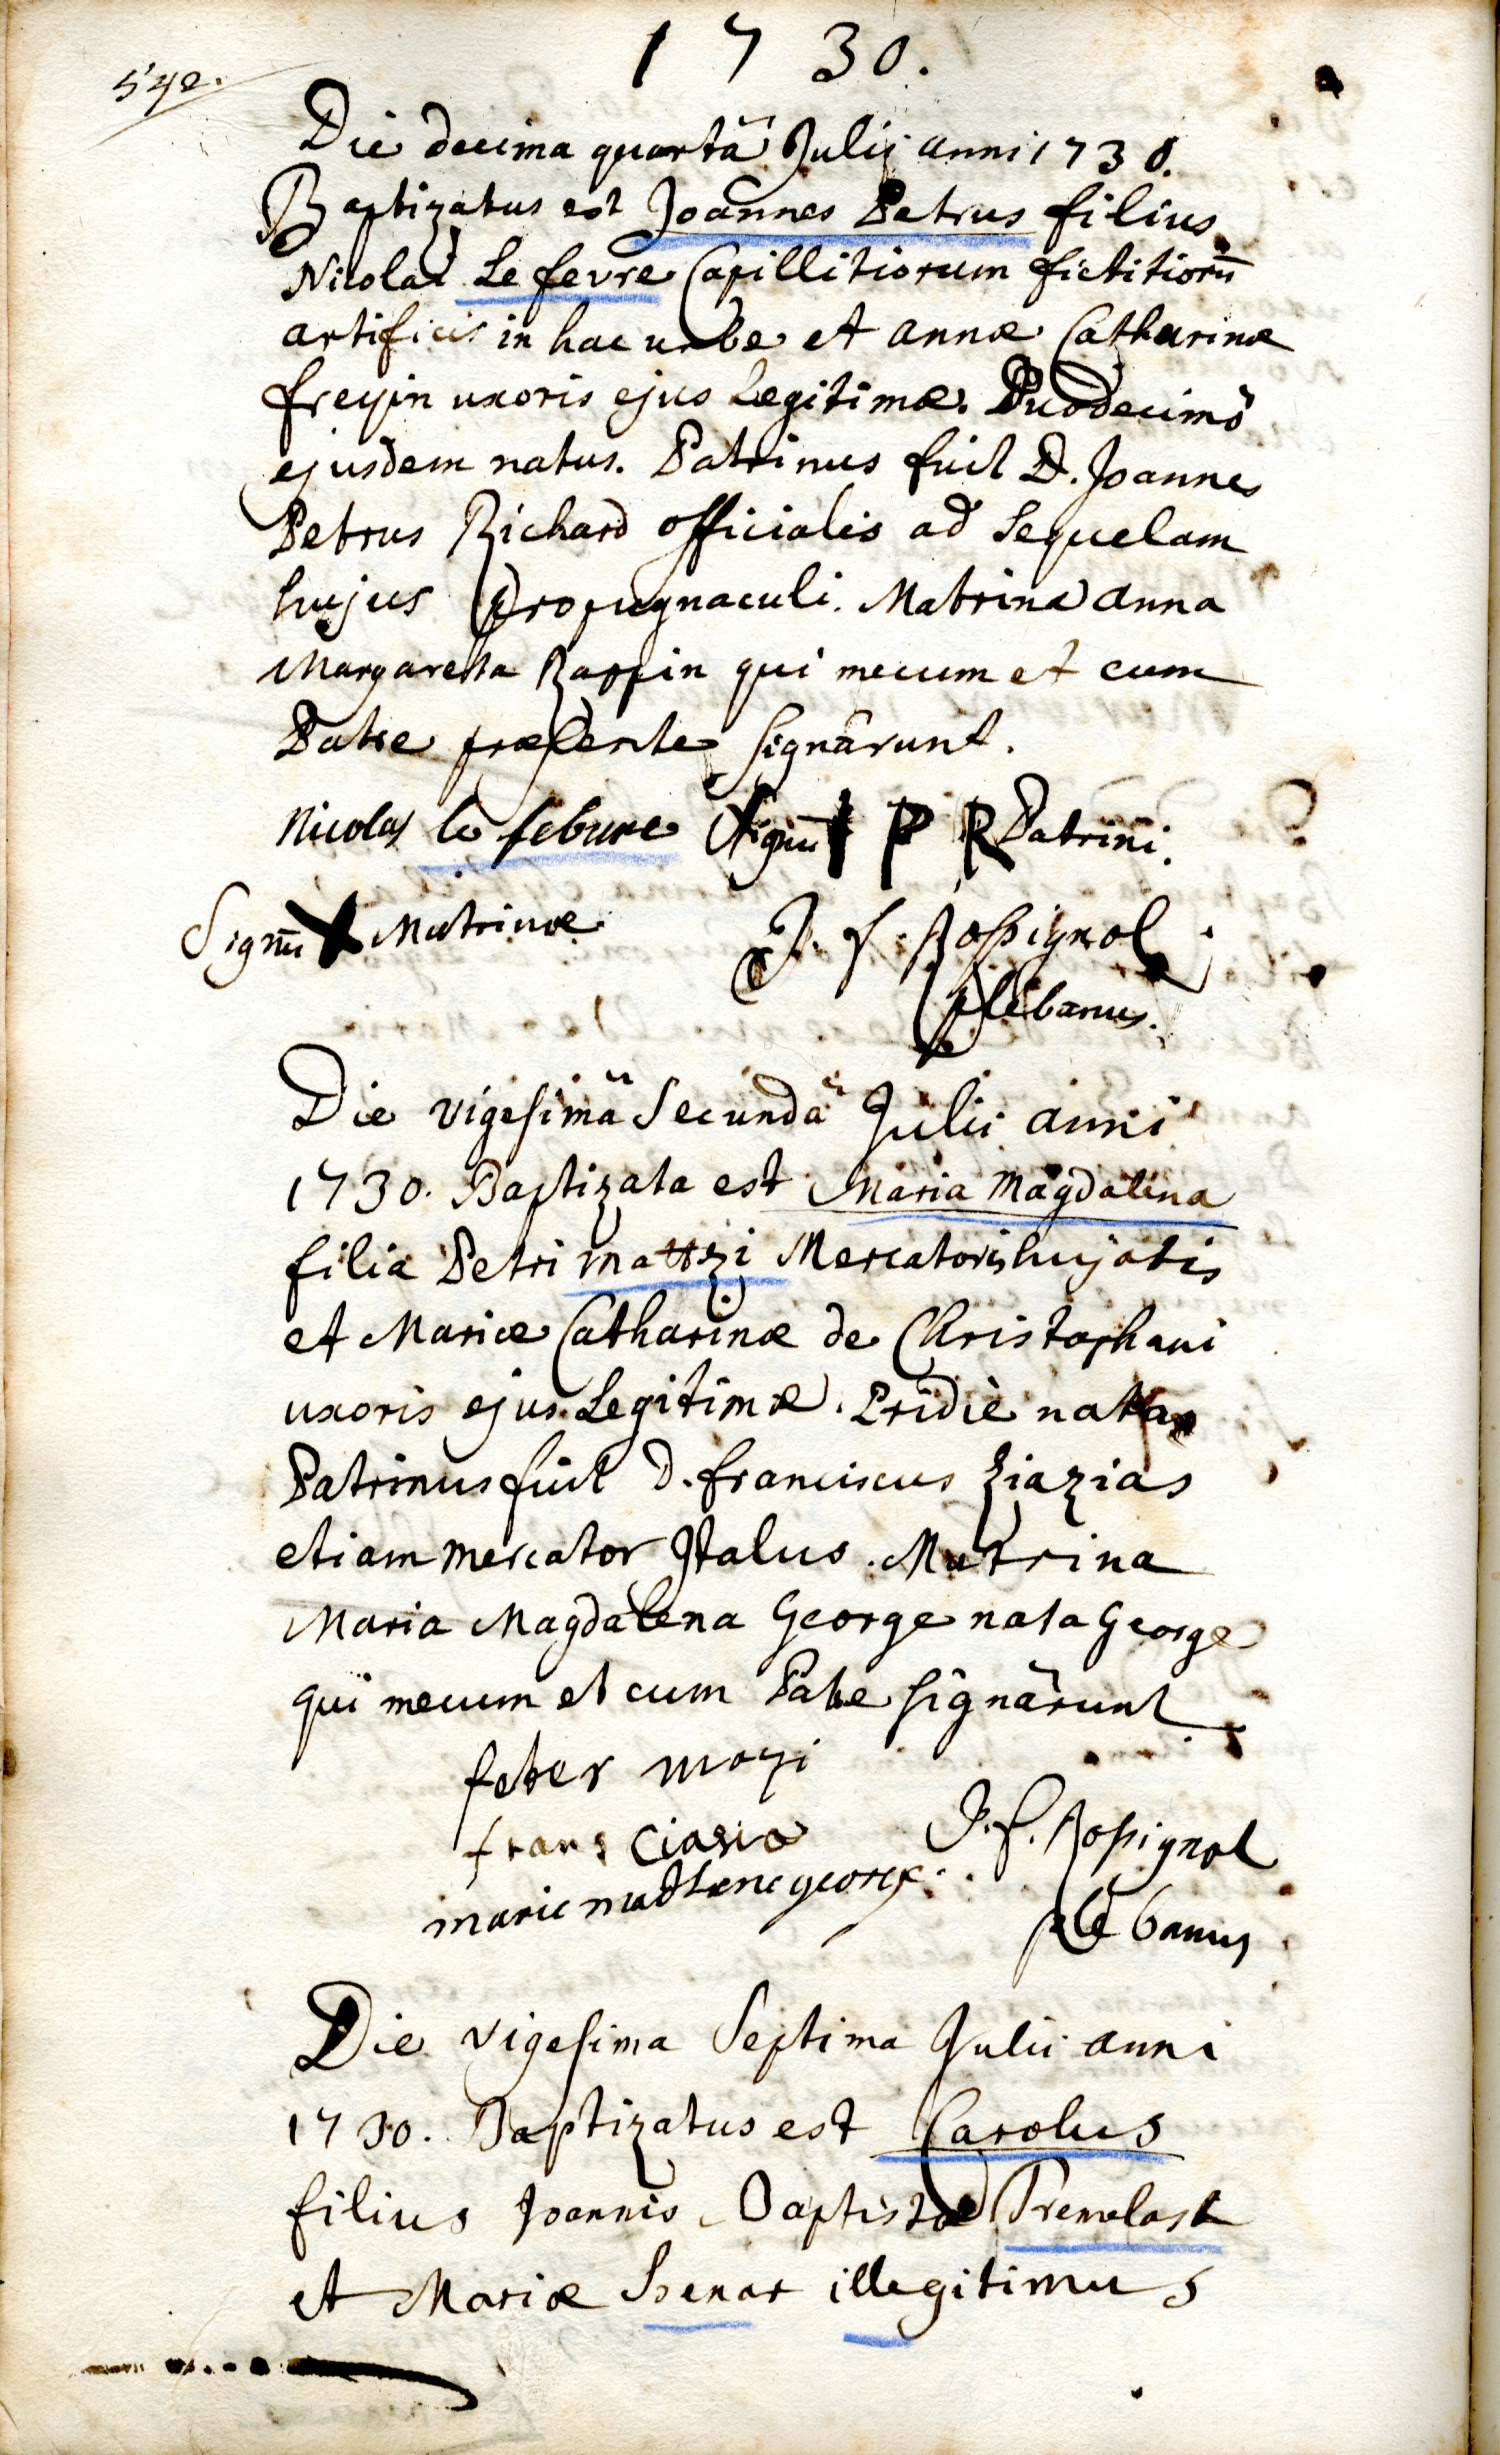 1730.
542.
Die decima quartâ Julij anni 1730.
Baptizatus est Joannes Petrus filius
Nicolai Le fevre Capillitiorum fictitiorū
artificis in hac urbe et annæ Catharinæ
freyin uxoris ejus Legitimæ. Duodecimô
ejusdem natus. Patrinus fuit D. Joannes
Petrus Richard officialis ad Sequelam
hujus propugnaculi. Matrina anna
Margaretha Zappin qui mecum et cum
Patre præsente signârunt.
Nicolas le febure Signū I P R Patrini.
Signū X Matrinæ J. f. Rossignol
plebanus.
Die vigesimâ secundâ Julii anni
1730. Baptizata est Maria Magdalena
filia Petri mattzi Mercatoris hujatis
et Mariæ Catharinæ de Christophani
uxoris ejus Legitimæ. Pridiè nata
Patrinus fuit D. franciscus Ziazias
etiam mercator Italus. Matrina
Maria Magdalena George nata George
qui mecum et cum Patre signârunt
peter mozi
frans Ciasia J. f. Rossignol
marie madlene george.
plebanus
Die vigesima Septima Julii anni
1730. Baptizatus est Carolus
filius Joannis Baptistæ Premelast
et Mariæ illegitimus